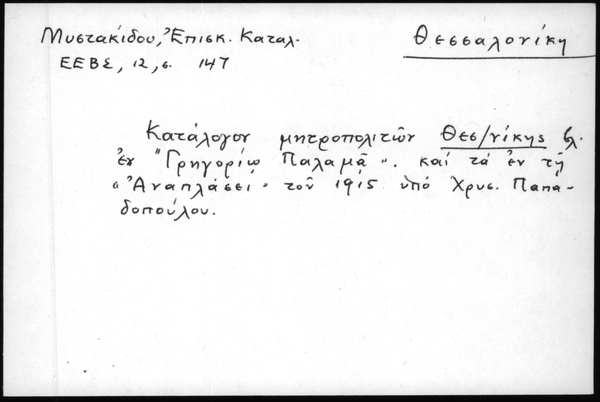 Μυστακίδου, Ἐπισκ. Καταλ.
Θεσσαλονίκη
ΕΕΒΣ, 12, σ. 147
Κατάλογον μητροπολιτῶν Θεσ/νίκης βλ.
ἐν "Γρηγορίῳ Παλαμᾶ". καί τά ἐν τῇ
"Ἀναπλάσει" τοῦ 1915 ὑπό Χρυσ. Παπα-
δοπούλου.